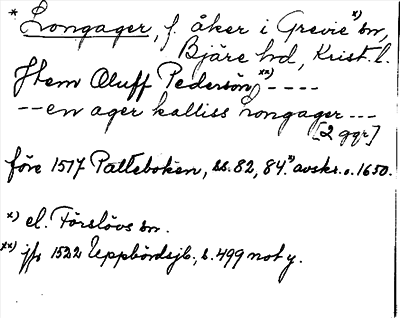 * Longager, f. åker i Grevie x) sn,
Bjäre hd, Krist. l.
Jtem Oluff Pedersön xx) ----
-- en ager kalliss Longager ---
[2 ggr]
före 1517 Palteboken, ss. 82, 84. avskr. o. 1650.
x) el. Förslövs sn.
xx) jfr 1522 Uppbördsjb., s. 499 not y.